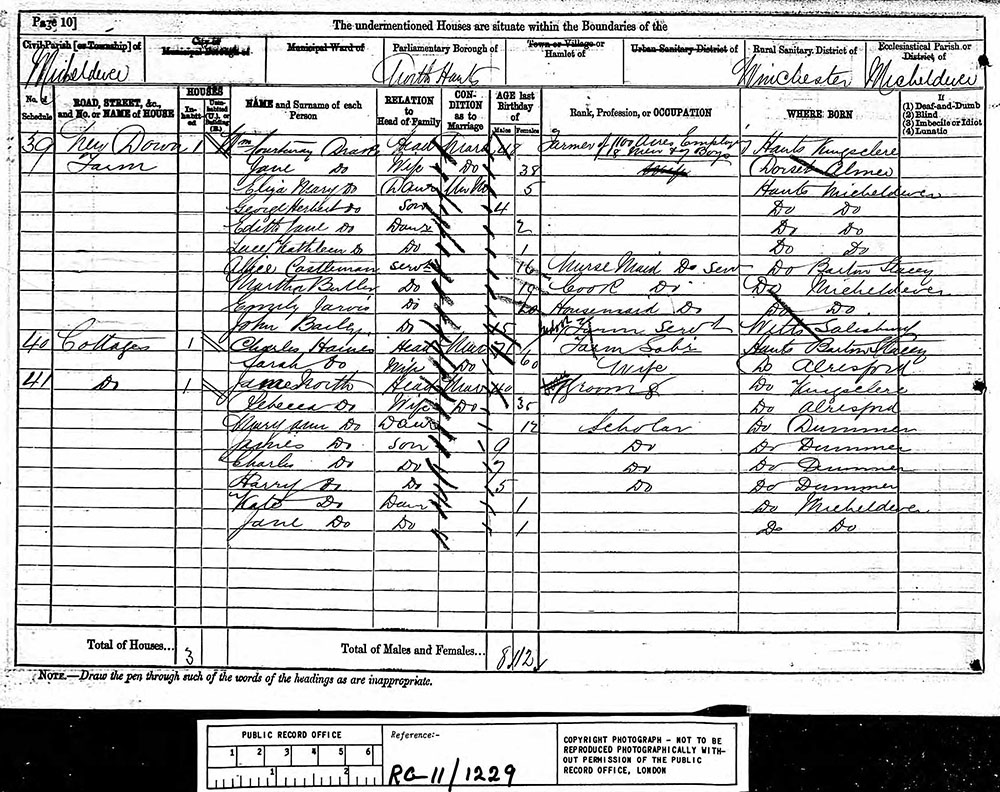 Page 10]
The undermentioned Houses are situate within the Boundaries of the
Civil Parish [or Township] of
City or Municipal Borough of
Municipal Ward of
Parliamentary Borough of
Town or Village or Hamlet of
Urban Sanitary District of
Rural Sanitary District of
Ecclesiastical Parish or District of
Micheldever North Hants Winchester Micheldever
No. of Schedule
ROAD, STREET, &c., and No. or NAME of HOUSE
HOUSES
Inhabited
Uninhabited (U.), or Building (B.)
NAME and Surname of each Person
RELATION to Head of Family
CONDITION as to Marriage
AGE last Birthday of
Males
Females
Rank, Profession, or OCCUPATION
WHERE BORN
If
(1) Deaf-and-Dumb
(2) Blind
(3) Imbecile or Idiot
(4) Lunatic
39 New Down 1 Wm Head Mar 48 Farmer of Acres Employ Hants Kingsclere
Farm Jane Do Wife Do 38 8 Men & Boys Dorset Almer
Eliza Mary Do Daur Unm 5 Hants Micheldever
George Herbert Do Son 4 Do Do
Edith Jane Do Daur 2 Do Do
Lucy Kathleen Do Do 1 Do Do
Alice Castleman Servt 16 Nurse Maid Do Serv Do Barton Stacey
Martha Butler Do 19 Cook Do Do Micheldever
Emily Jarvis Do 20 Housemaid Do Do Do
John Bailey Do 45 Farm Servt Wilts Salisbury
40 Cottages 1 Charles Haines Head Mar 71 Farm Labr Hants Barton Stacey
Sarah Do Wife Do 60 Wife Do Alresford
41 Do 1 James North Head Mar 40 Groom Do Kingsclere
Rebecca Do Wife Do 35 Do Alresford
Mary Ann Do Daur 12 Scholar Do Dummer
James Do Son 9 Do Do Dummer
Charles Do Do 7 Do Do Dummer
Harry Do Do 5 Do Do Dummer
Kate Do Daur 1 Do Micheldever
Jane Do Do 1 Do Do
Total of Houses... 3
Total of Males and Females... 8 12
NOTE.—Draw the pen through such of the words of the headings as are inappropriate.
PUBLIC RECORD OFFICE
1 2 3 4 5 6
1 2
Reference:-
RG 11/1229
COPYRIGHT PHOTOGRAPH - NOT TO BE
REPRODUCED PHOTOGRAPHICALLY WITH-
OUT PERMISSION OF THE PUBLIC
RECORD OFFICE, LONDON